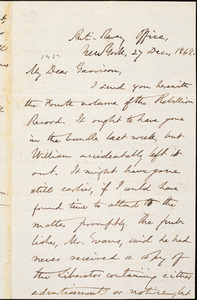 Anti-Slavery Office,
New York, 27 Dec., 1862.
My Dear Garrison,
I send you herewith
the Fourth volume of the Rebellion
Record. It ought to have gone
in the bundle last week, but
William accidentally left it
out. It might have gone
still earlier, if I could have
found time to attend to the
matter promptly. The pub-
lisher, Mr. Evans, said he had
never received a copy of
the Liberator containing either
advertisement or notice, but